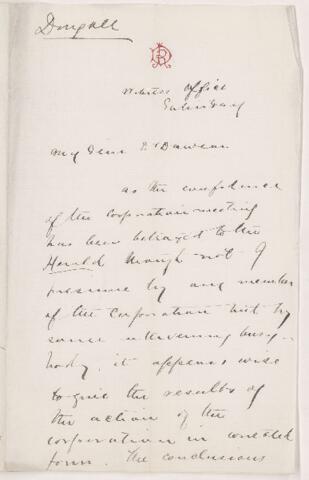 Dougall
Witness Office
Saturday
My Dear Dr Dawson
as the confidence
of the Corporation meeting
has been betrayed to the
Herald though not I
presume by any member
of the Corporation but by
some intervening busy-
body, it appears wise
to give the results of
the action of the
corporation in
form. The conclusions